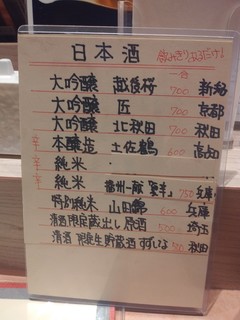 日本酒
一合
大吟醸 越後桜 700 新潟
大吟醸 匠 700 京都
大吟醸 北秋田 700 秋田
辛 本醸造 土佐鶴 600 高知
辛 純米
辛 純米 播州一献 750 兵庫
特別純米 山田錦 600 兵庫
清酒限定蔵出し原酒 500 埼玉
清酒 限定生貯蔵酒 700 秋田